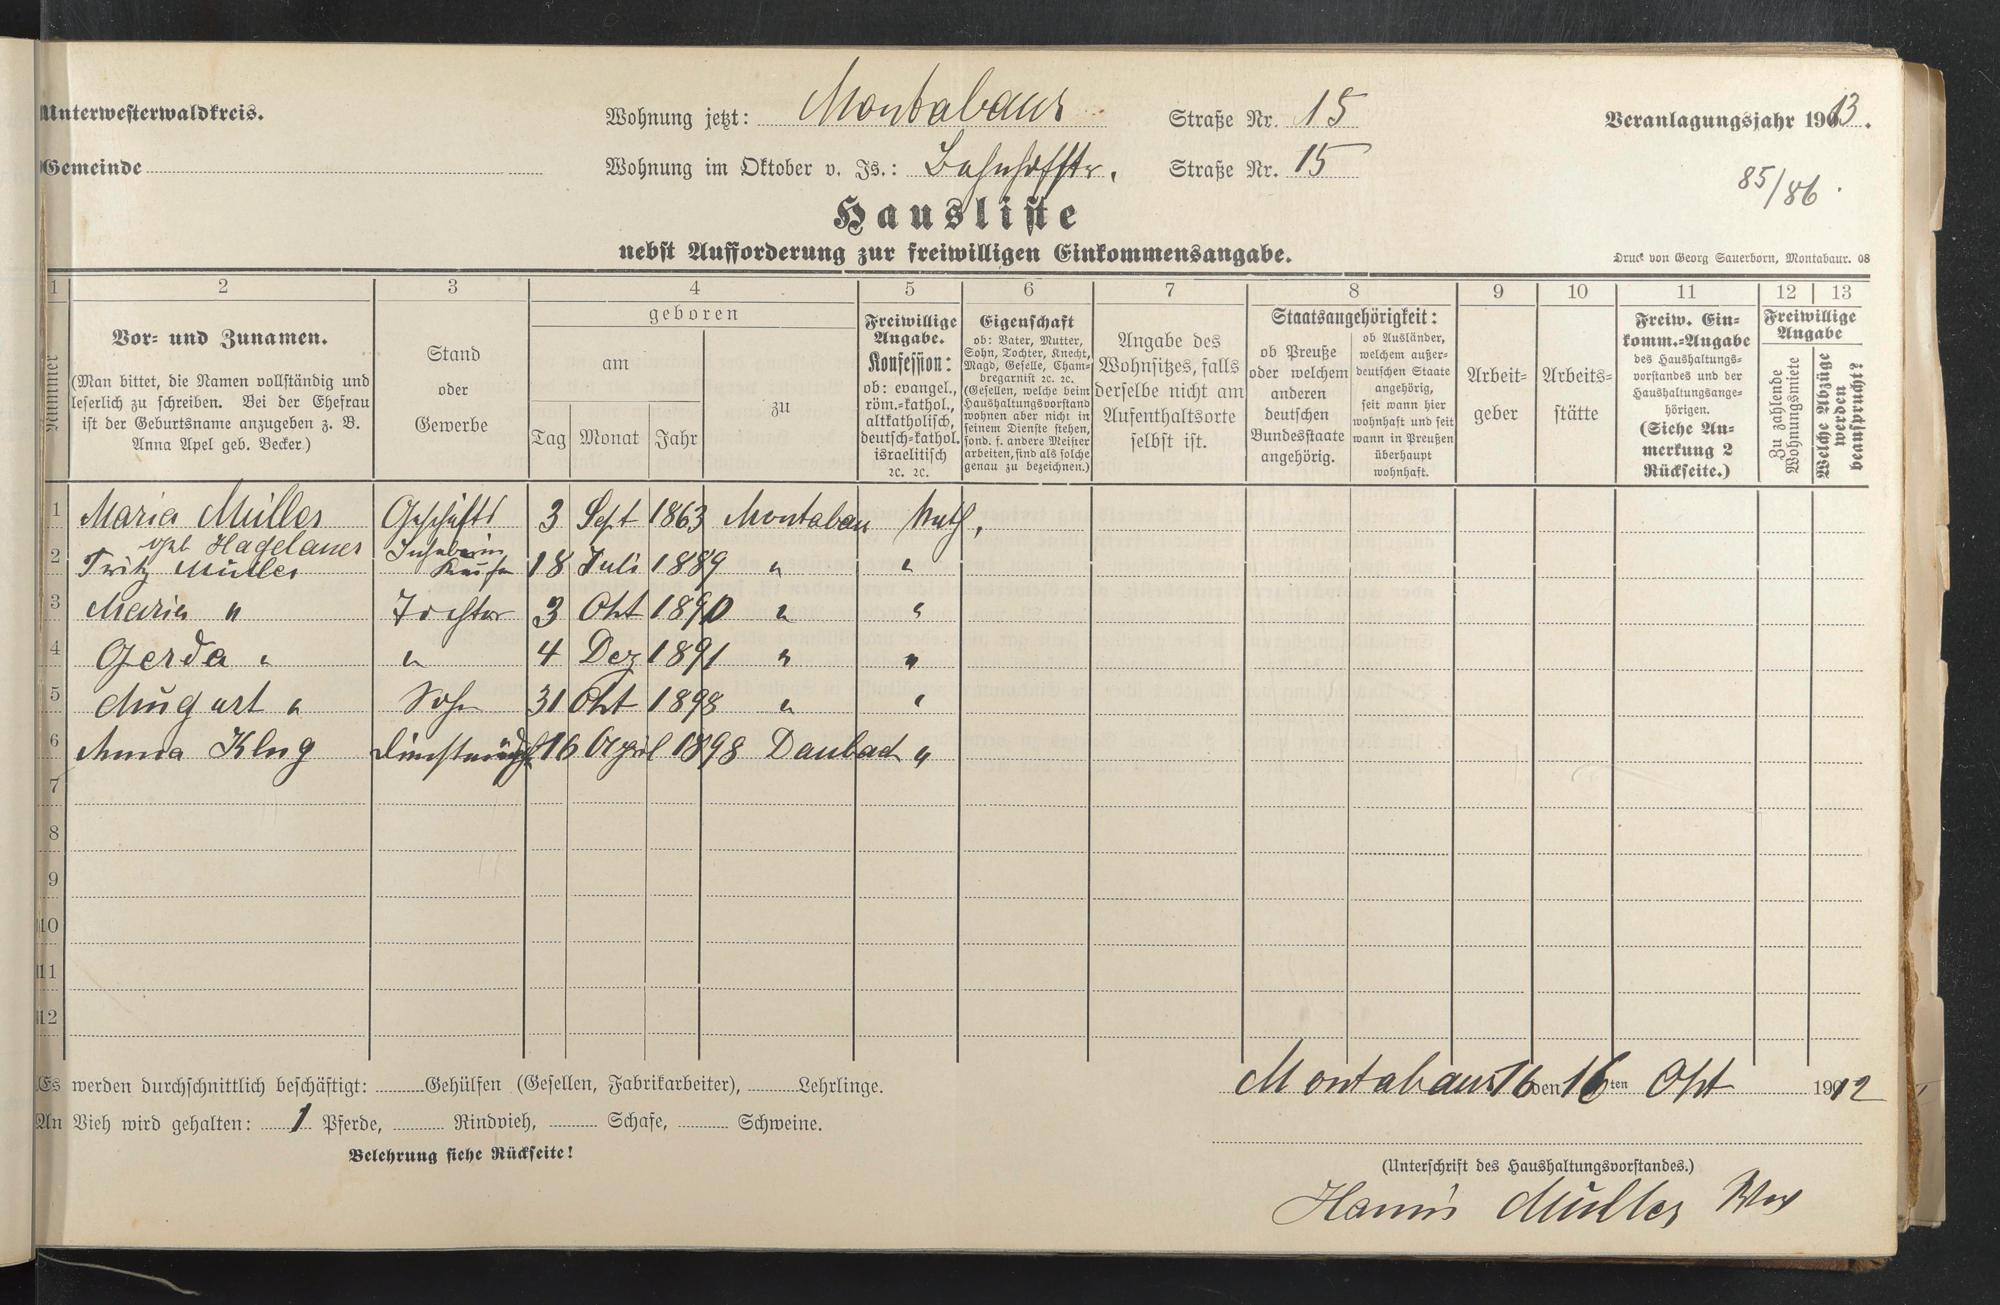 Unterwesterwaldkreis.
Wohnung jetzt: Montabaur Straße Nr. 15
Veranlagungsjahr 1913.
Gemeinde
Wohnung im Oktober v. Js.: Bahnhofstr. Straße Nr. 15
85/86
Hausliste
nebst Aufforderung zur freiwilligen Einkommensangabe.
Druck von Georg Sauerborn, Montabaur. 08
1 2 3 4 5 6 7 8 9 10 11 12 13
Nummer
Vor- und Zunamen.
(Man bittet, die Namen vollständig und
leserlich zu schreiben. Bei der Ehefrau
ist der Geburtsname anzugeben z. B.
Anna Apel geb. Becker.)
Stand
oder
Gewerbe
geboren
am
Tag Monat Jahr
zu
Freiwillige
Angabe.
Konfession:
ob: evangel.,
röm.-kathol.,
altkatholisch,
deutsch-kathol.
israelitisch
2c. 2c.
Eigenschaft
ob: Vater, Mutter,
Sohn, Tochter, Knecht,
Magd, Geselle, Cham-
bregarnist 2c. 2c.
(Gesellen, welche beim
Haushaltungsvorstand
wohnen aber nicht in
seinem Dienste stehen,
sond. f. andere Meister
arbeiten, sind als solche
genau zu bezeichnen.)
Angabe des
Wohnsitzes, falls
derselbe nicht am
Aufenthaltsorte
selbst ist.
Staatsangehörigkeit:
ob Preuße
oder welchem
anderen
deutschen
Bundesstaate
angehörig.
ob Ausländer,
welchem außer-
deutschen Staate
angehörig,
seit wann hier
wohnhaft und seit
wann in Preußen
überhaupt
wohnhaft.
Arbeit-
geber
Arbeits-
stätte
Freiw. Ein-
komm.-Angabe
des Haushaltungs-
vorstandes und der
Haushaltungsange-
hörigen.
(Siehe An-
merkung 2
Rückseite.)
Freiwillige
Angabe
Zu zahlende
Wohnungsmiete
Welche Abzüge
werden
beansprucht?
1 Maria Müller Geschäfts 3 Sept 1863 Montabaur Kath.
gbl Hadelauer Inhaberin
2 Fritz Müller Kaufm 18 Juli 1889 " "
3 Maria " Tochter 3 Okt 1890 " "
4 Gerda " " 4 Dez 1891 " "
5 August " Sohn 31 Okt 1898 " "
6 Anna Klug Dienstmädch 16 April 1898 Daubach "
7
8
9
10
11
12
Es werden durchschnittlich beschäftigt: Gehülfen (Gesellen, Fabrikarbeiter), Lehrlinge.
An Vieh wird gehalten: 1 Pferde, Rindvieh, Schafe, Schweine.
Belehrung siehe Rückseite!
Montabaur 16 den 16ten Okt 1912
(Unterschrift des Haushaltungsvorstandes.)
Müller Ww